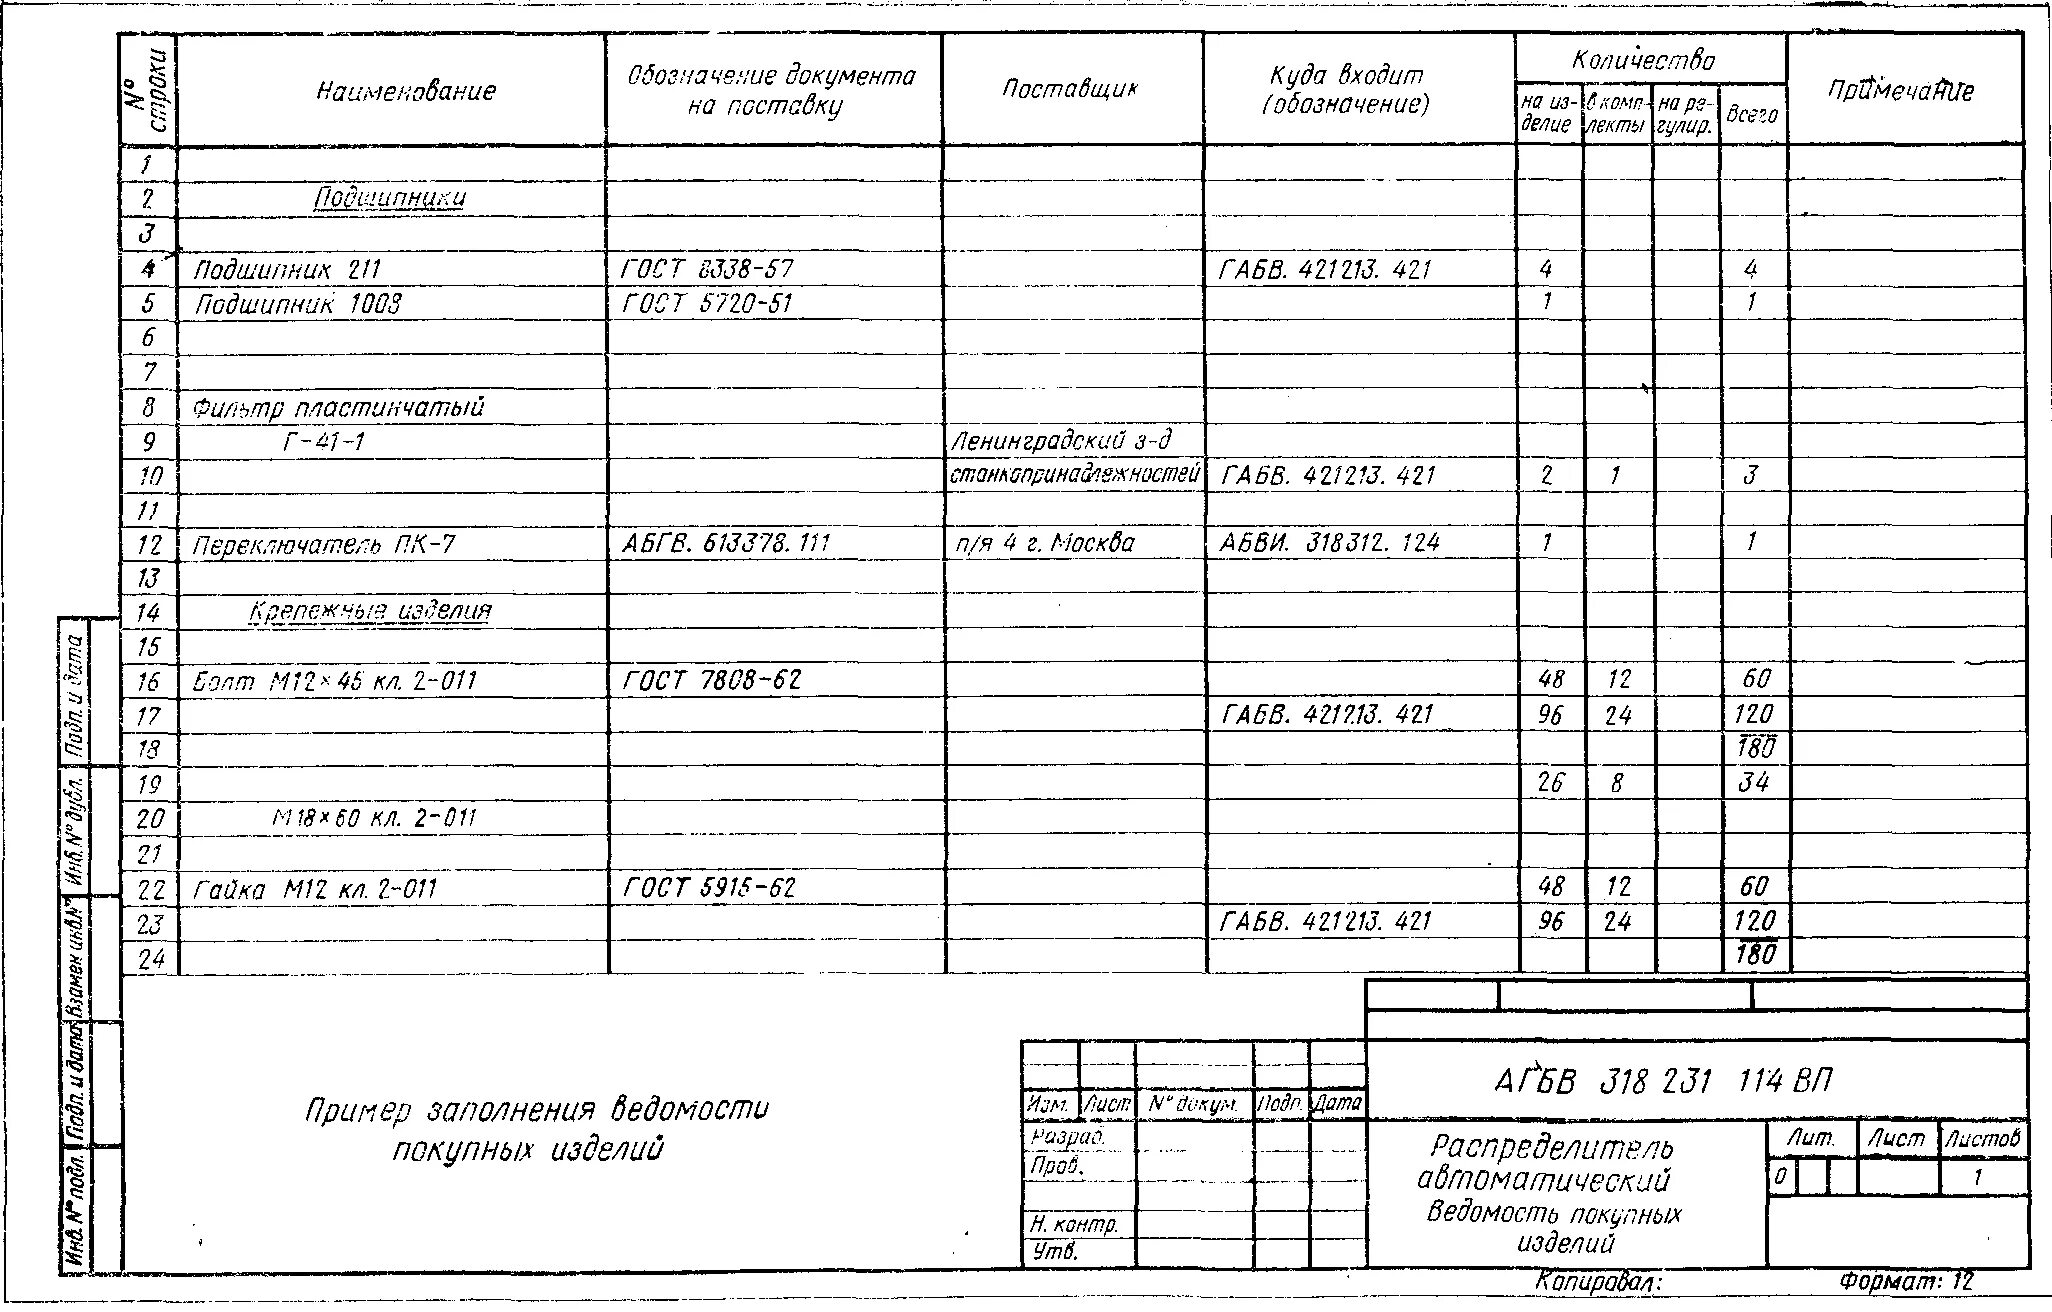 № строки
Наименование
Обозначение документа
на поставку
Поставщик
Куда входит
(обозначение)
Количество
на из-
делие
в комп-
лекты
на ре-
гулир.
Всего
Примечание
1
2 Подшипники
3
4 Подшипник 211 ГОСТ 8338-57 ГАБВ. 421213. 421 4 4
5 Подшипник 1008 ГОСТ 5720-51 1 1
6
7
8 Фильтр пластинчатый
9 Г-41-1 Ленинградский з-д
10 станкопринадлежностей ГАБВ. 421213. 421 2 1 3
11
12 Переключатель ПК-7 АБГВ. 613378. 111 п/я 4 г. Москва АБВИ. 318312. 124 1 1
13
14 Крепежные изделия
15
16 Болт М12×45 кл. 2-011 ГОСТ 7808-62 48 12 60
17 ГАБВ. 421213. 421 96 24 120
18 180
19 26 8 34
20 М18×60 кл. 2-011
21
22 Гайка М12 кл. 2-011 ГОСТ 5915-62 48 12 60
23 ГАБВ. 421213. 421 96 24 120
24 180
Подп. и дата
Инв. № дубл.
Взамен инв. №
Подп. и дата
Инв. № подл.
Пример заполнения ведомости
покупных изделий
Изм. Лист № докум. Подп. Дата
Разраб.
Пров.
Н. контр.
Утв.
АГБВ 318 231 114 ВП
Распределитель
автоматический
Ведомость покупных
изделий
Лит. Лист Листов
О 1
Копировал: Формат: 12